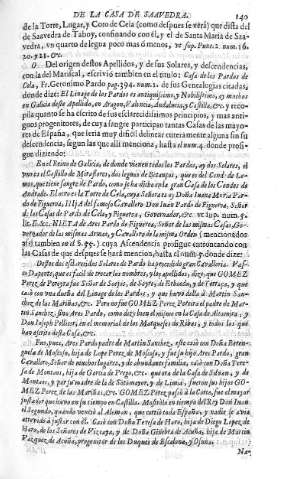 DE LA CASA DE SAAVEDRA. 140
de la Torre, Lugar, y Coto de Cela (como despues se verà) que dista del
de Saavedra de Taboy, confinando con èl, y el de Santa Maria de Saa-
vedra, un quarto de legua poco mas ò menos, ut sup. num. 16.
20. y 21. &c.
Del origen destos Apellidos, y de sus Solares, y descendencias,
con la del Mariscal, escriviò tambien en el titulo: Casa de los Pardos de
Cela, Fr. Geronimo Pardo pag. 394. num. 1. de sus Genealogias citadas,
donde dize: El Linage de los Pardos es antiquissimo, y Nobilissimo, ay muchos
en Galicia deste Apellido, en Aragon, Valencia, Andalucia, y Castilla, &c. y reco-
pila quanto se ha escrito de sus esclarecidissimos principios, y mas anti-
guos progenitores, de cuya sangre participan tantas Casas de las mayo-
res de España, que seria muy dificil delinear enteramente alguna sin su
descendencia, segun las que alli menciona, hasta el num. 4. donde prosi-
gue diziendo:
En el Reino de Galicia, de donde vienen todos los Pardos, ay dos Solares, el
uno es el Castillo de Miraflores, dos leguas de Betanços, que es del Conde de Le-
mos, que tiene sangre de Pardo, con se ha dicho en la gran Casa de los Condes de
Andrade. El otro es la Torre de Cela, cuya Señora es oy Doña Maria Par-
do de Figueroa, HIJA del famoso Cavallero Don Juan Pardo de Figueroa, Señor
de las Casas de Pardo de Cela, y Figueroa, Governador, &c. ut sup. num. 4.
lit. E. &c. NIETA de Ares Pardo de Figueroa, Señor de las mismas Casas, Go-
vernador de las mismas Armas, y Cavallero de la misma Orden (mencionado
aì tambien en el §. 99.) cuya Ascendencia prosigue entroncando con
las Casas de que despues se harà mencion, hasta el num. 5. donde dize:
Destos dos esclarecidos Solares de Pardo ha procedido gran Cavalleria. Vas-
co Daponte, que es facil de trocar los nombres, y los apellidos, dize, que GOMEZ
Perez de Pereyra fue Señor de y de Teraço, y que
casò con una dueña del Linage de los Pardos, y que huvo della à Martin San-
chez de las Mariñas, &c. Pero no fue sino GOMEZ Perez Potero el padre de Mar-
tin Sanchez, sino Ares Pardo, como dize bien el mismo en la Casa de Altamira, y
Don Joseph Pellicer, en el memorial de los Marqueses de Ribas, y todos los que
hãn escrito desta Casa, &c.
Fue, pues, Ares Pardo padre de Martin Sanchez, este casò con Doña Beren-
guela de Moscoso, hija de Lope Perez de Moscoso, y fue su hijo Ares Pardo, gran
Cavallero, Señor de muchos lugares, y de abundante familia, casò con Doña Tere-
sa de Montaos, hija de Garcia de Prego, &c. natural de la Casa de Sobran, y de
Montaos, y por su madre de la de Sotomayor, y de Limia, fueron sus hijos GO-
MEZ Perez, de las Mariñas, &c. GOMEZ Perez passò à la Corte, fue el mayor
justador que huvo en su tiempo en Castilla. Mostròlo en tiempo del Rey Don Juan
el Segundo, quando venciò al Aleman, que corriò toda España, y nadie se avia
atrevido à justar con èl. Casò con Doña Teresa de Haro, hija de Diego Lopez de
Haro, de los Señores de Vizcaya, y de Doña Ginebra de Acuña, hija de Martin
Vazquez de Acuña, progenitor de los Duques de Escalona, y Ossuna.
Na-